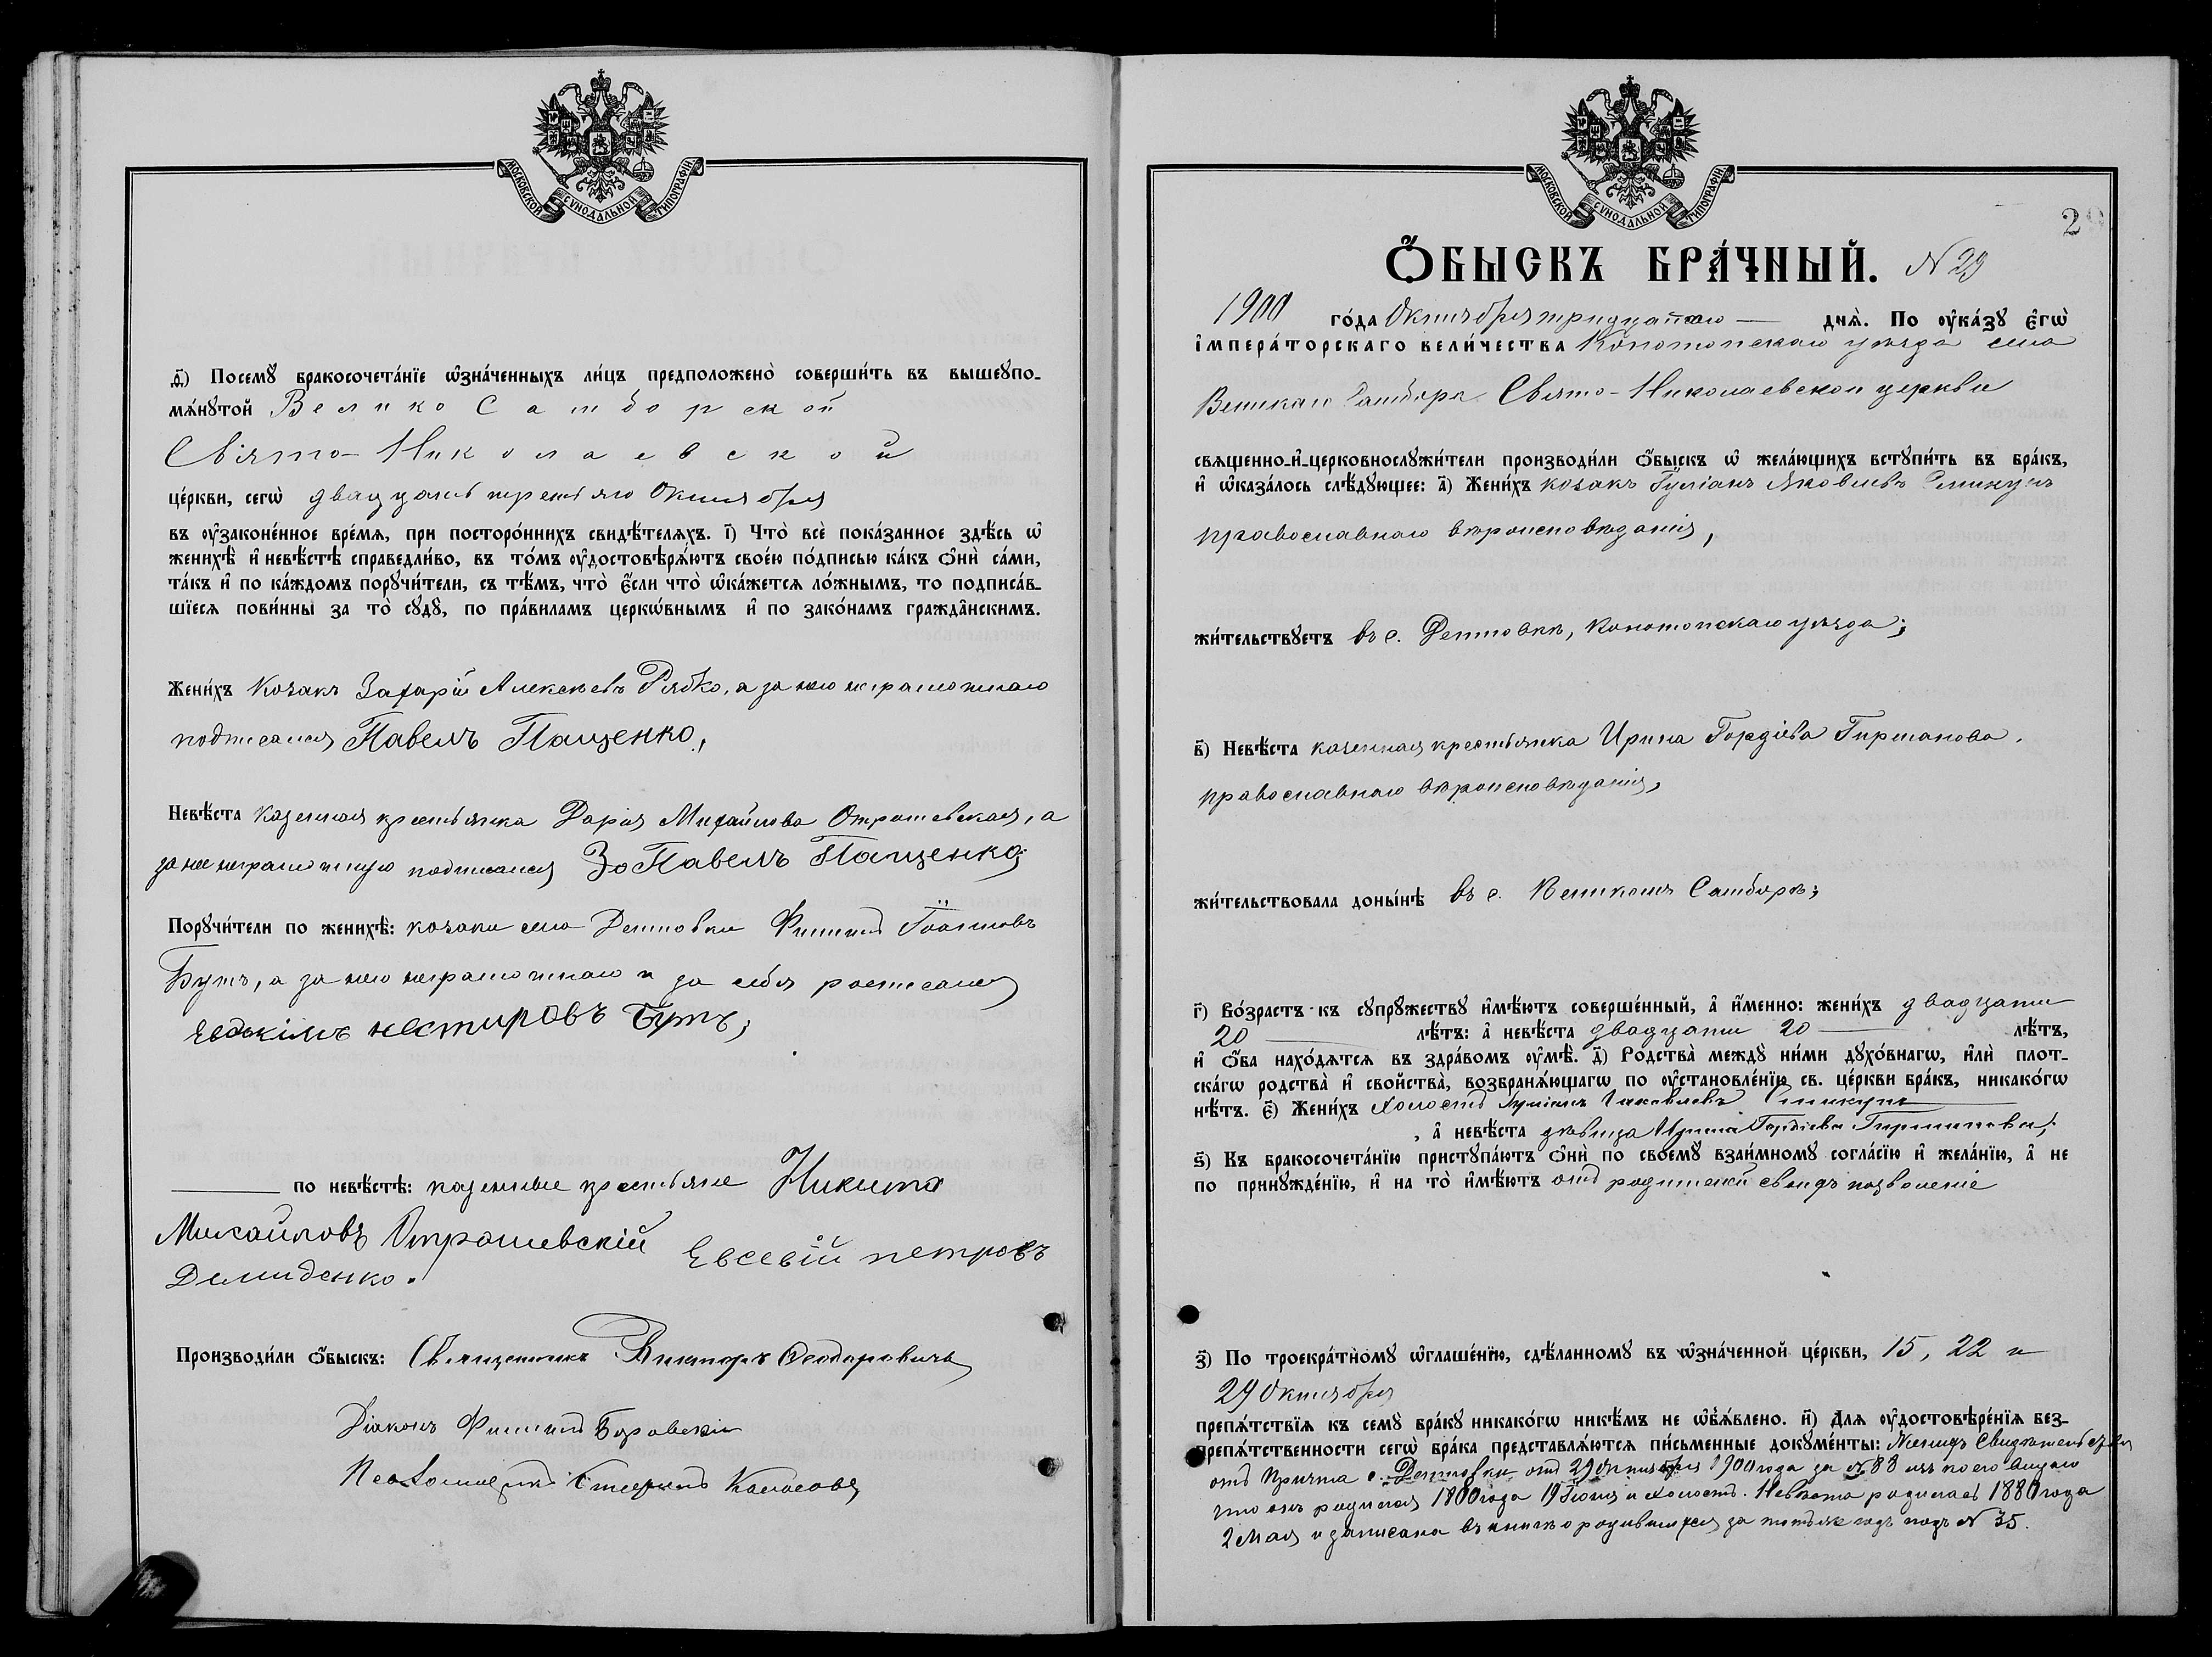 МОСКОВСКОЙ СѴНОДАЛЬНОЙ ТИПОГРАФІИ
ѳ҃) Посемꙋ̀ бракосочета́нїе ѡ҆зна́ченныхъ ли́цъ предположено̀ соверши́ть въ вышеꙋпо-
мѧ́нꙋтой Велико Самборской
Свято-Николаевской
це́ркви, сегѡ̀ двадцать третьяго Октября
въ ᲂу҆законе́нное вре́мѧ, при посторо́ннихъ свидѣ́телѧхъ. і҃) Что̀ всѐ пока́занное здѣ́сь ѡ҆
женихѣ̀ и҆ невѣ́стѣ справедли́во, въ то́мъ ᲂу҆достовѣрѧ́ютъ свое́ю по́дписью ка́къ ѻ҆нѝ са́ми,
та́къ и҆ по ка́ждомъ порꙋчи́тели, съ тѣ́мъ, что̀ є҆́сли что̀ ѡ҆ка́жетсѧ ло́жнымъ, то подписа́в-
шїесѧ пови́нны за то̀ сꙋдꙋ̀, по пра́виламъ церко́внымъ и҆ по зако́намъ гражда́нскимъ.
Жени́хъ Козакъ Захарій Алексѣевъ Рябко, а за него неграмотнаго
подписался Павелъ Пащенко,
Невѣ́ста казенная крестьянка Дарія Михайлова Отрошевская, а
за нее неграмотную подписался Зо Павелъ Пащенко;
Порꙋчи́тели по женихѣ̀: козаки села Дептовки Филиппъ Іоанновъ
Бутъ, а за него неграмотнаго и за себя росписался
Евдокімъ нестировъ Бутъ;
по невѣ́стѣ: казенные крестьяне Никита
Михайловъ Отрошевскій Евсевій петровъ
Демиденко.
Производи́ли ѻ҆́быскъ: Священникъ Викторъ Ѳеодоровичъ
Діаконъ Филиппъ Боровскій
Псаломщикъ
МОСКОВСКОЙ СѴНОДАЛЬНОЙ ТИПОГРАФІИ
29
ѺБЫСКЪ БРА́ЧНЫЙ. N 29
1900 го́да Октября тридцатаго дня̀. По ᲂу҆ка́зꙋ є҆гѡ̀
і҆мпера́торскаго вели́чества Конотопскаго уѣзда села
Великаго Самбора Свято-Николаевской церкви
свѧщенно-и҆-церковнослꙋжи́тели производи́ли ѻ҆́быскъ ѡ҆ жела́ющихъ встꙋпи́ть въ бра́къ,
и҆ ѡ҆каза́лось слѣ́дꙋющее: а҃) Жени́хъ козакъ Іуліанъ Яковлевъ
православнаго вѣроисповѣданія,
жи́тельствꙋетъ въ с. Дептовкѣ, Конотопскаго уѣзда;
в҃) Невѣ́ста казенная крестьянка Ирина Гордіева Гирманова.
православнаго вѣроисповѣданія,
жи́тельствовала доны́нѣ въ с. Великомъ Самборѣ;
г҃) Во́зрастъ къ сꙋпрꙋ́жествꙋ и҆мѣ́ютъ соверше́нный, а҆ и҆́менно: жени́хъ двадцати
20 лѣ́тъ: а҆ невѣ́ста двадцати 20 лѣ́тъ,
и҆ ѻ҆́ба нахо́дѧтсѧ въ здра́вомъ ᲂу҆мѣ̀. д҃) Родства̀ междꙋ̀ ни́ми дꙋхо́внагѡ, и҆лѝ плот-
ска́гѡ родства̀ и҆ свойства̀, возбранѧ́ющагѡ по ᲂу҆становле́нїю св. це́ркви бра́къ, никако́гѡ
нѣ́тъ. є҃) Жени́хъ холостъ Іуліанъ Іаковлевъ
, а҆ невѣ́ста дѣвица Ирина Гордіева Гирманова;
ѕ҃) Къ бракосочета́нїю пристꙋпа́ютъ ѻ҆нѝ по своемꙋ̀ взаи́мномꙋ согла́сїю и҆ жела́нїю, а҆ не
по принꙋжде́нїю, и҆ на то̀ и҆мѣ́ютъ отъ родителей своихъ позволеніе
з҃) По троекра́тномꙋ ѡ҆глаше́нїю, сдѣ́ланномꙋ въ ѡ҆зна́ченной це́ркви, 15, 22 и
29 Октября
препѧ́тствїѧ къ семꙋ̀ бра́кꙋ никако́гѡ никѣ́мъ не ѡ҆бъѧ́влено. и҃) Длѧ ᲂу҆достовѣре́нїѧ без-
препѧ́тственности сегѡ̀ бра́ка представлѧ́ютсѧ пи́сьменные докꙋме́нты: Женихъ Свидѣтельство
отъ Причта с. Дептовки отъ 29 Октября 1900 года за № 88 изъ коего видно
что онъ родился 1880 года 19 Іюня и холостъ. Невѣста родилась 1880 года
2 Мая и записана въ книгѣ о родившихся за тотъ же годъ подъ № 35.